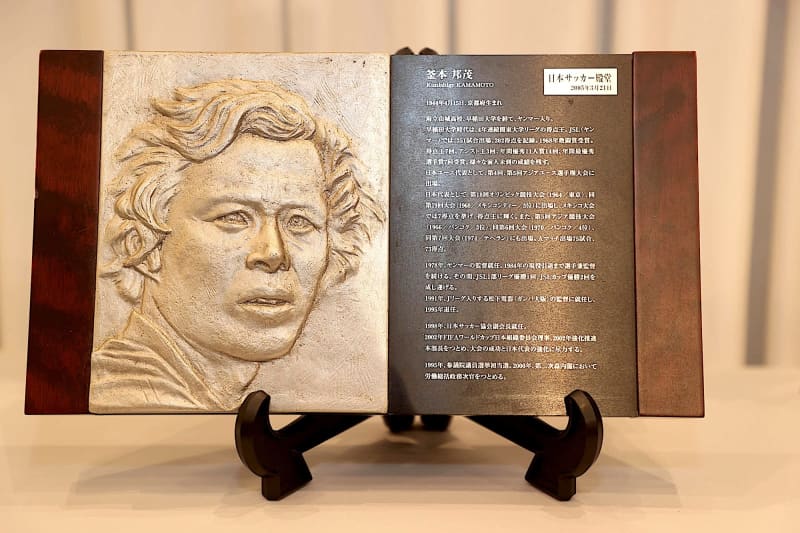 釜本 邦茂
Kunishige KAMAMOTO
日本サッカー殿堂
2005年3月23日
1944年4月15日、京都府生まれ
府立山城高校、早稲田大学を経て、ヤンマー入り。
早稲田大学時代は、4年連続関東大学リーグの得点王。JSL(ヤン
マー)では、251試合出場、202得点を記録。1968年敢闘賞受賞。
得点王7回、アシスト王3回、年間優秀11人賞14回、年間最優秀
選手賞7回受賞。様々な前人未到の成績を残す。
日本ユース代表として、第4回、第5回アジアユース選手権大会に
出場。
日本代表として、第18回オリンピック競技大会(1964/東京)、同
第19回大会(1968/メキシコシティー/3位)に出場し、メキシコ大会
では7得点を挙げ、得点王に輝く。また、第5回アジア競技大会
(1966/バンコク/3位)、同第6回大会(1970/バンコク/4位)、
同第7回大会(1974/テヘラン)にも出場。Aマッチ出場75試合、
75得点。
1978年、ヤンマーの監督就任。1984年の現役引退まで選手兼監督
を続ける。その間、JSL1部リーグ優勝1回、JSLカップ優勝2回を
成し遂げる。
1991年、Jリーグ入りする松下電器(ガンバ大阪)の監督に就任し、
1995年退任。
1998年、日本サッカー協会副会長就任。
2002年FIFAワールドカップ日本組織委員会理事、2002年強化推進
本部長をつとめ、大会の成功と日本代表の強化に尽力する。
1995年、参議院議員選挙初当選。2000年、第二次森内閣において
労働総括政務次官をつとめる。